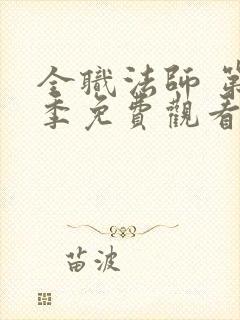 全職法師 第
季免費觀看
苗波